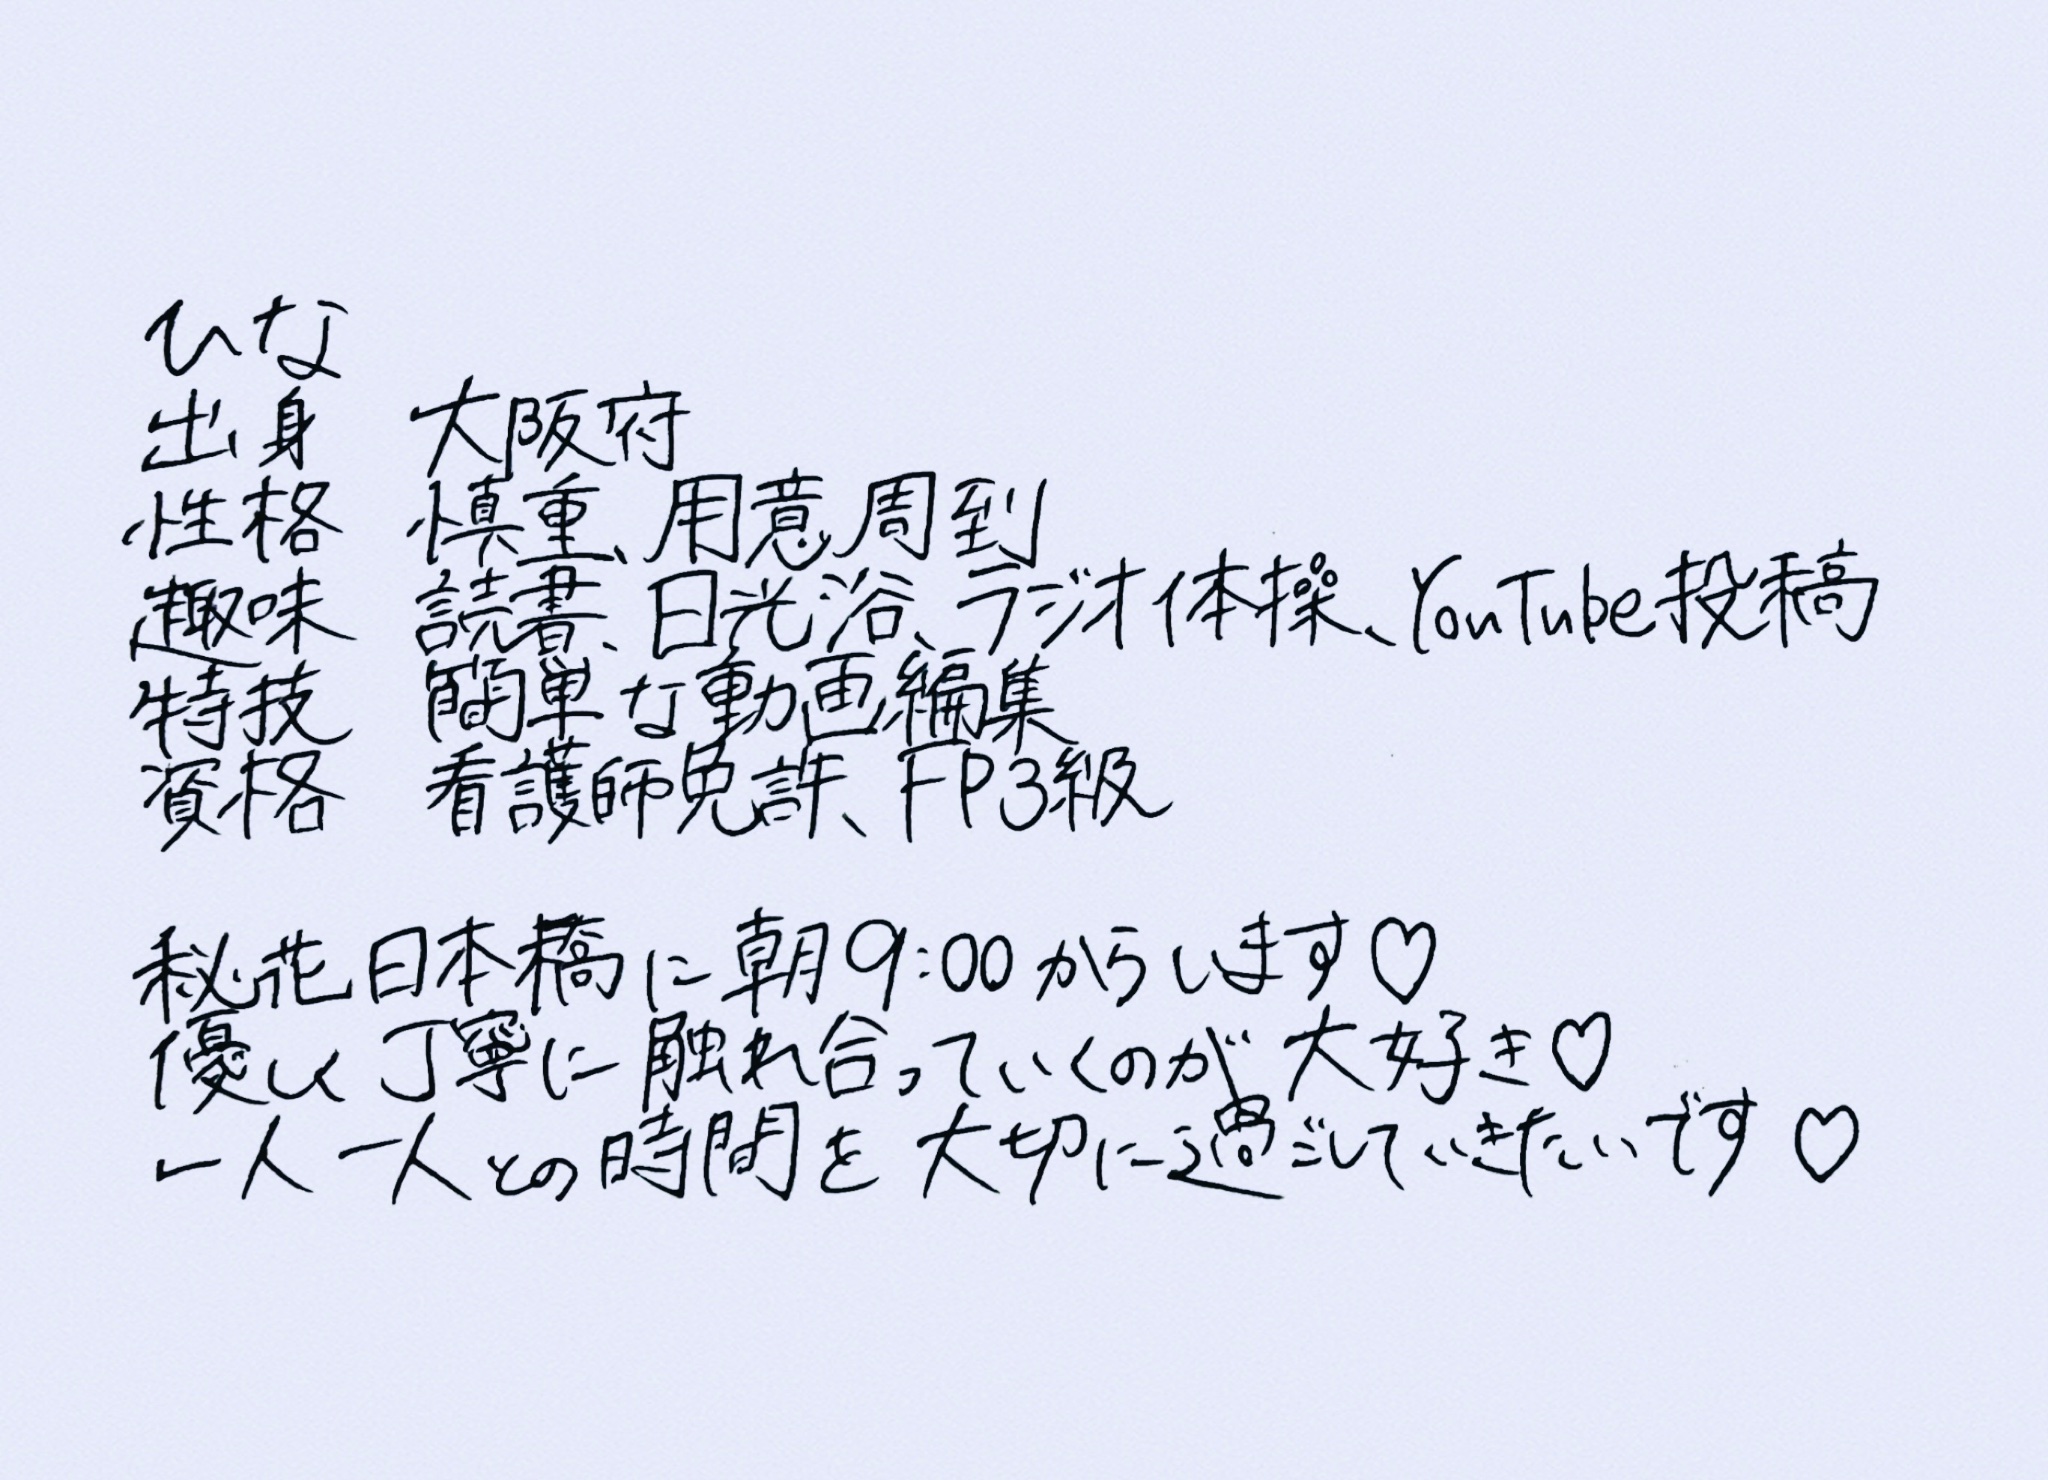 ひな
出身 大阪府
性格 慎重、用意周到
趣味 読書、日光浴、ラジオ体操、YouTube投稿
特技 簡単な動画編集
資格 看護師免許、FP3級
秘花日本橋に朝9:00からします♡
優しく丁寧に触れ合っていくのが大好き♡
一人一人との時間を大切に過ごしていきたいです♡